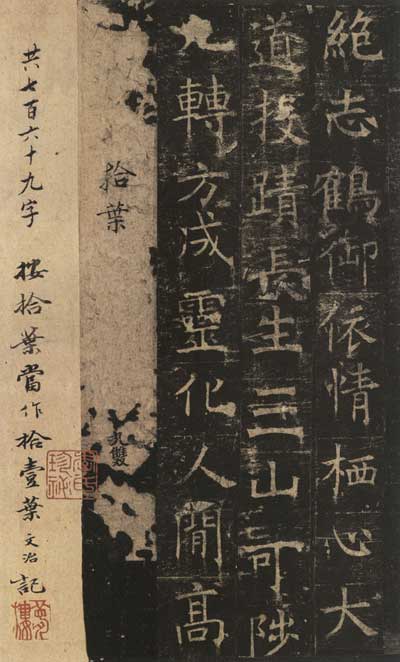 絶志鶴御依情栖心大
道投蹟長生三山可陟
九轉方成靈化人間髙
拾葉
共七百六十九字
按拾葉當作拾壹葉文治記